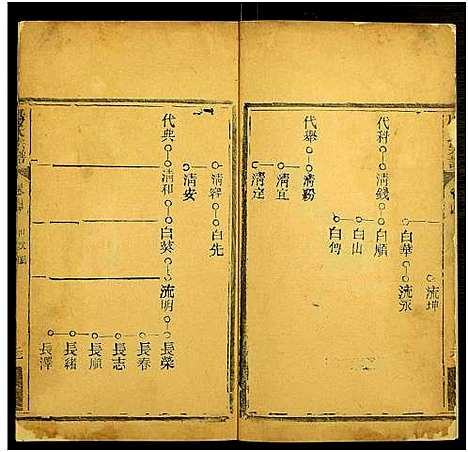 流坤
白華 流永
代科 清錢 白順
白山
白傳
代舉 清粉
清宜
清廷
清容 白先
清安
代典 清和 白葵 流明 長榮
長春
長志
長順
長緒
長澤